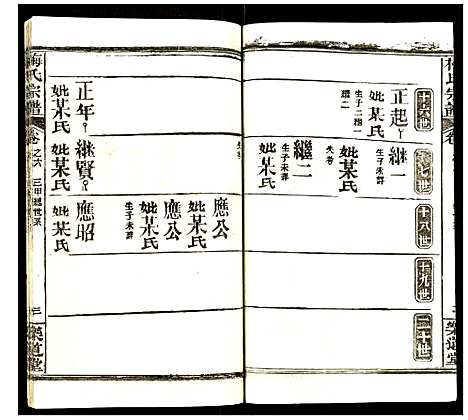 十六世
正起
妣某氏
生子二繼一
繼二
正年
妣某氏
十七世
繼一
妣某氏
生子未詳
繼二
妣某氏
生子未詳
失考
繼賢
妣某氏
十八世
應公
妣某氏
應公
妣某氏
生子未詳
應昭
妣某氏
十九世
二十世
梅氏宗譜
卷之六
三甲遞世系
三
樂道堂